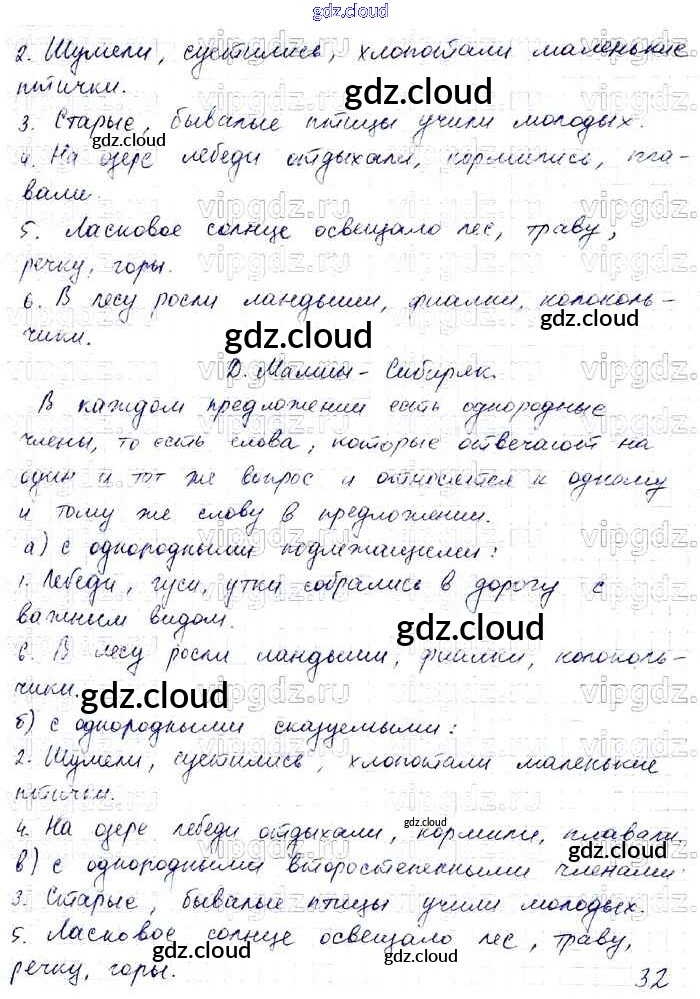 gdz.cloud
2. Шумели, суетились, хлопотали маленькие
птички.
3. Старые, бывалые птицы учили молодых.
4. На озере лебеди отдыхали, кормились, пла-
вали.
5. Ласковое солнце освещало лес, траву,
речку, горы.
6. В лесу росли ландыши, фиалки, колоколь-
чики.
Д. Мамин-Сибиряк.
В каждом предложении есть однородные
члены, то есть слова, которые отвечают на
один и тот же вопрос и относятся к одному
и тому же слову в предложении.
а) с однородными подлежащими:
1. Лебеди, гуси, утки собрались в дорогу с
важным видом.
6. В лесу росли ландыши, фиалки, колоколь-
чики.
б) с однородными сказуемыми:
2. Шумели, суетились, хлопотали маленькие
птички.
4. На озере лебеди отдыхали, кормили, плавали.
в) с однородными второстепенными членами:
3. Старые, бывалые птицы учили молодых.
5. Ласковое солнце освещало лес, траву,
речку, горы.
32